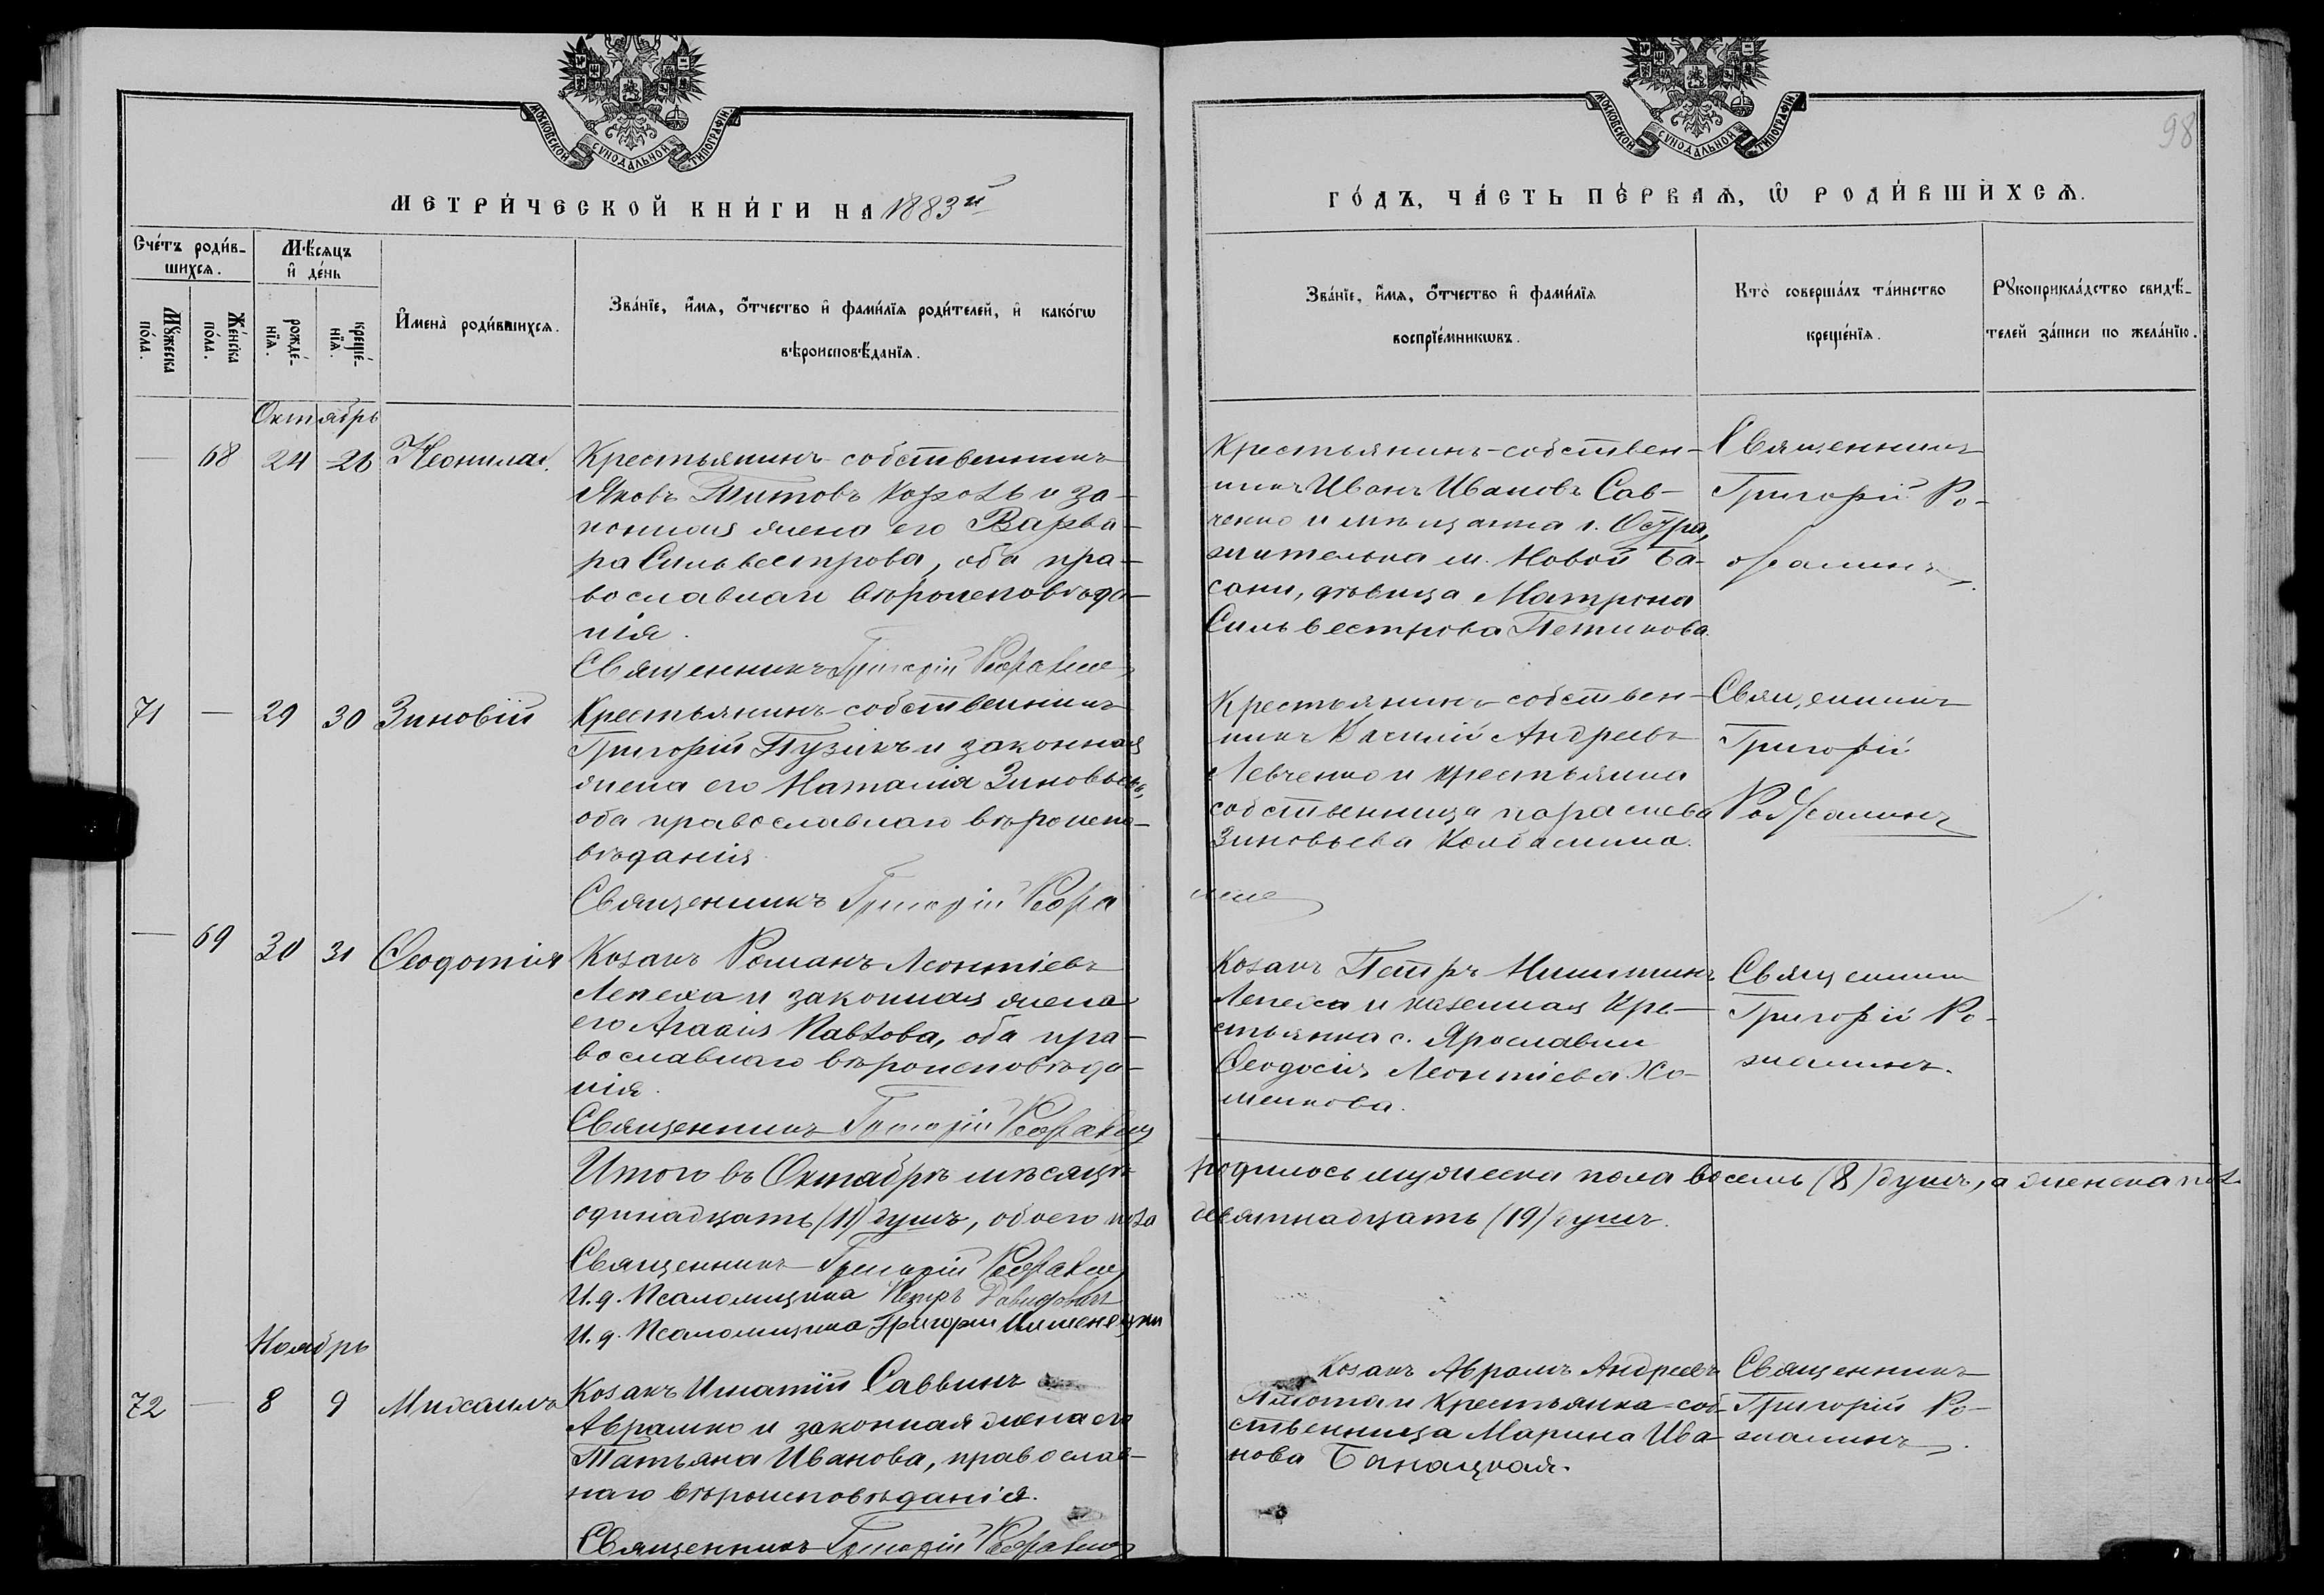 98
МОСКОВСКОЙ СУНОДАЛЬНОЙ ТИПОГРАФІИ.
МОСКОВСКОЙ СУНОДАЛЬНОЙ ТИПОГРАФІИ.
МЕТРИ́ЧЕСКОЙ КНИ́ГИ НА 1883й
ГО́ДЪ, ЧА́СТЬ ПЕ́РВАѦ, Ѡ РОДИ́ВШИХСѦ.
Сче́тъ роди́в-
шихсѧ.
Мꙋ́жеска по́ла.
Же́нска по́ла.
Мѣ́сѧцъ
и҆ де́нь
рожде́-
нїѧ.
креще́-
нїѧ.
И҆мена̀ роди́вшихсѧ.
Зва́нїе, и҆́мѧ, ѻ҆́тчество и҆ фами́лїѧ роди́телей, и҆ како́гѡ
вѣроисповѣ́данїѧ.
Зва́нїе, и҆́мѧ, ѻ҆́тчество и҆ фами́лїѧ
воспрїе́мникѡвъ.
Кто̀ соверша́лъ та́инство
креще́нїѧ.
Рꙋкоприкла́дство свидѣ́-
телей за́писи по жела́нїю.
Октябрь
— 68 24 26 Неонила.
Крестьянинъ собственникъ
Яковъ Титовъ Король и за-
конная жена его Варва-
ра Сильвестрова, оба пра-
вославнаго вѣроисповѣда-
нія.
Священникъ Григорій
Крестьянинъ-собствен-
никъ Иванъ Ивановъ Сав-
ченко и мѣщанка г. Остра,
жителька м. Новой Ба-
сани, дѣвица Матрона
Сильвестрова Петикова.
Священникъ
Григорій Ро-
71 — 29 30 Зиновій
Крестьянинъ-собственникъ
Григорій Пузикъ и законная
жена его Наталія Зиновьева,
оба православнаго вѣроиспо-
вѣданія.
Священникъ Григорій
Крестьянинъ-собствен-
никъ Андреевъ
Левченко и крестьянка
собственница Параскева
Зиновьева
Священникъ
Григорій
— 69 30 31 Ѳеодотія
Козакъ Романъ Леонтіевъ
Лепеха и законная жена
его Агафія Павлова, оба пра-
вославнаго вѣроисповѣда-
нія.
Священникъ Григорій
Козакъ Петръ Никитинъ
Лепеха и казенная кре-
стьянка с. Ярославки
Ѳеодосія Леонтіева Хо-
менкова.
Священникъ
Григорій Ро-
Итого въ Октябрѣ мѣсяцѣ родилось мужеска пола восемь (8) душъ, а женска пол.
одинадцать (11) душъ, обоего пола девятнадцать (19) душъ.
Священникъ Григорій
И. д. Псаломщика Петръ Давидовичъ
И. д. Псаломщика Григорій
Ноябрь
72 — 8 9 Михаилъ
Козакъ Игнатій Саввинъ
Аврамко и законная жена его
Татьяна Иванова, православ-
наго вѣроисповѣданія.
Священникъ Григорій
Козакъ Аврамъ Андреевъ
и крестьянка-соб-
ственница Марина Ива-
нова Банацкая.
Священникъ
Григорій Ро-